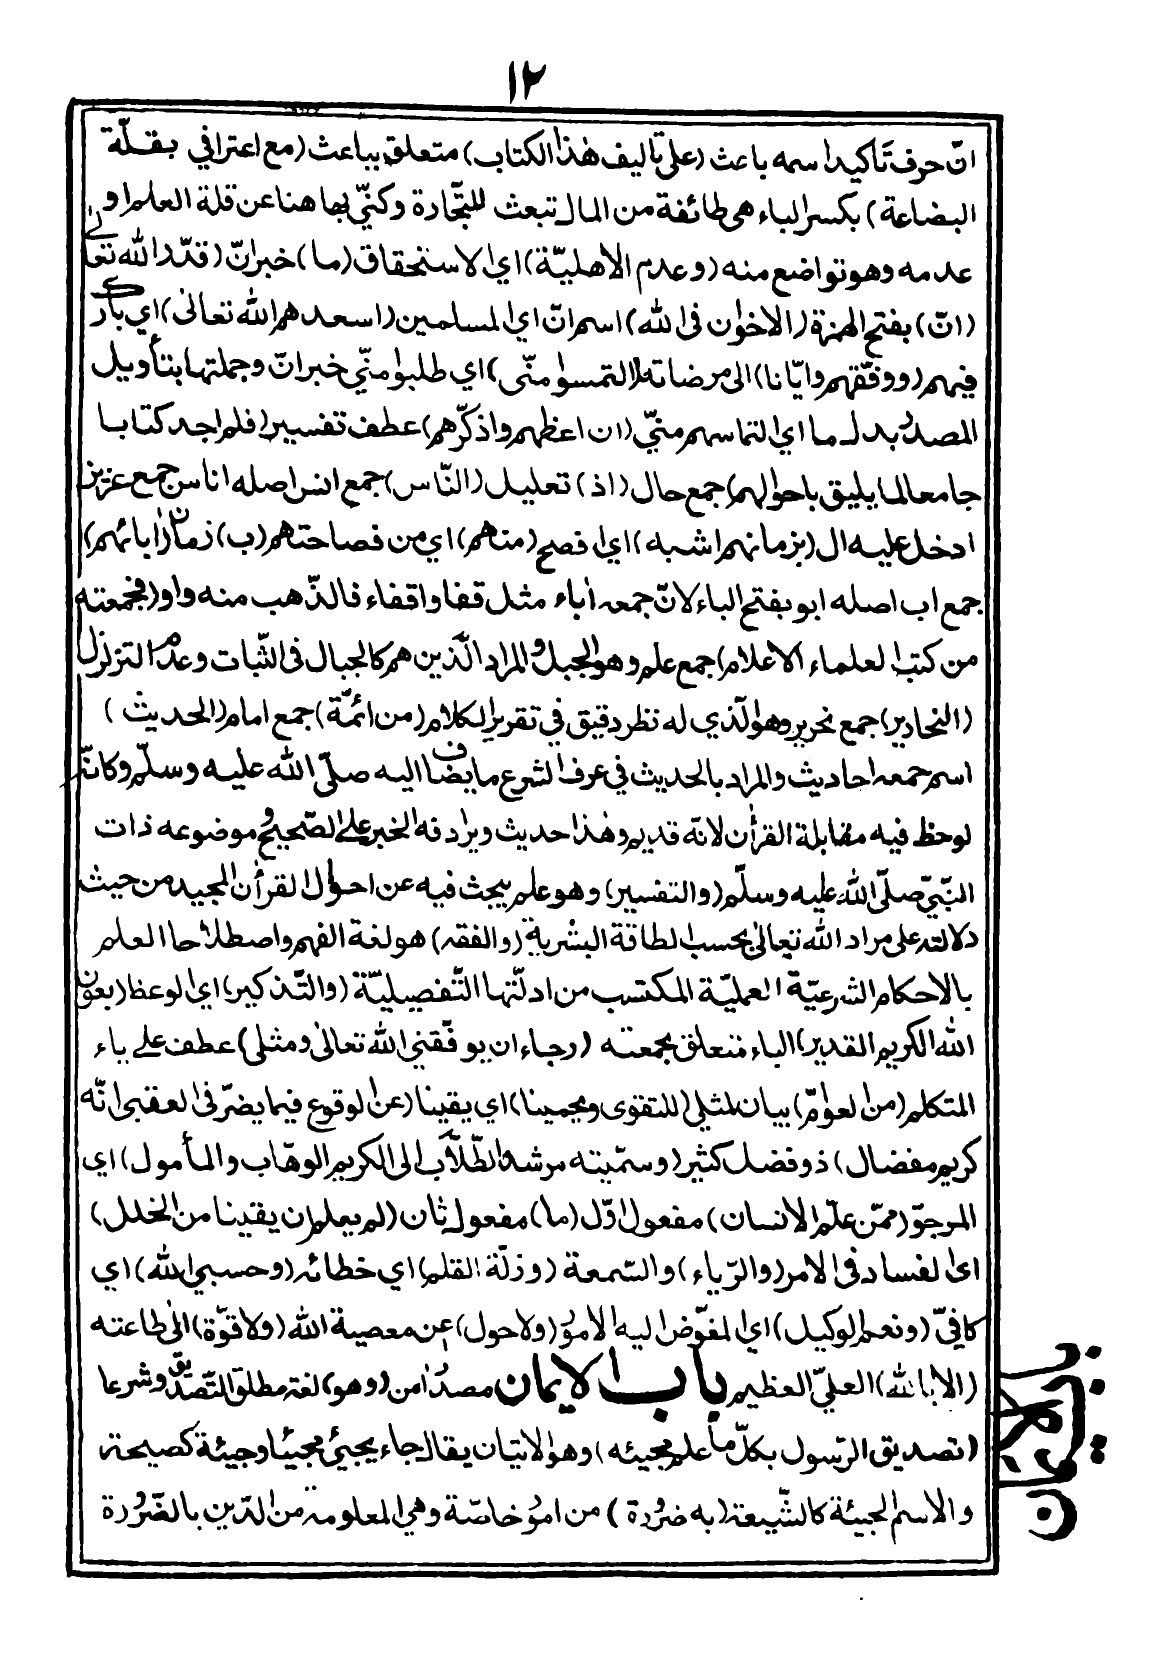 ١٢
انّ حرف تأكيد اسمه باعث (على تاليف هٰذا الكتاب) متعلق بباعث (مع اعترافي بقلّة
البضاعة) بكسر الباء هى طائفة من المال تبعث للتجارة وكنّي بها هنا عن قلة العلم او
عدمه وهو تواضع منه (وعدم الاهليّة) اي الاستحقاق (ما) خبر انّ (قدّر الله تعالىٰ
(انّ) بفتح الهمزة (الاخوٰن فى الله) اسم انّ اي المسلمين (اسعدهم الله تعالىٰ) اي بارك
فيهم (ووفّقهم وايّانا) الى مرضاته (التمسوا منّى) اي طلبوا منّي خبر انّ وجملتها بتأويل
المصدر بدل ما اي التماسهم منيّ (ان اعظهم واذكّرهم) عطف تفسير (فلم اجد كتابا
جامعا لما يليق باحوالهم) جمع حال (اذ) تعليل (النّاس) جمع انس اصله اناس جمع عزيز
ادخل عليه ال (بزمانهم اشبه) اي افصح (منهم) اي من فصاحتهم (ب) زمان (اٰبائهم)
جمع اب اصله ابو بفتح الباء لانّ جمعه اٰباء مثل قفا واقفاء فالذّهب منه واو (فجمعته
من كتب العلماء الاعلام) جمع علم وهو الجبل والمراد الّذين هم كالجبال فى الثّبات وعدم التزلزل
(النحارير) جمع نحرير وهو الّذي له نظر دقيق في تقرير الكلام (من ائمّة) جمع امام (الحديث)
اسم جمعه احاديث والمراد بالحديث في عرف الشرع ما يضاف اليه صلّى الله عليه وسلّم وكانّه
لوحظ فيه مقابلة القرأن لانّه قديم وهٰذا حديث ويرادفه الخبر على الصّحيح وموضوعه ذات
النّبيّ صلّى الله عليه وسلّم (والتفسير) وهو علم يبحث فيه عن احوال القرأن المجيد من حيث
دلالته على مراد الله تعالىٰ بحسب الطاقة البشرية (والفقه) هو لغة الفهم واصطلاحا العلم
بالاحكام الشرعيّة العمليّة المكتسب من ادلّتها التّفصيليّة (والتّذكير) اي الوعظ (بعون
الله الكريم القدير) الباء متعلق بجمعته (رجاء ان يوفّقني الله تعالىٰ ومثلي) عطف على ياء
المتكلم (من العوامّ) بيان لمثلي (للتقوى ويحمينا) اي يقينا (عن الوقوع فيما يضرّ فى العقبى انّه
كريم مفضال) ذو فضل كثير (وسمّيته مرشد الطّلّاب الى الكريم الوهّاب والمأمول) اي
المرجوّ (ممّن علّم الانسان) مفعول اوّل (ما) مفعول ثان (لم يعلم ان يقينا من الخلل)
اى الفساد فى الامر (والرّياء) والسّمعة (وزلّة القلم) اي خطائه (وحسبي الله) اي
كافيّ (ونعم الوكيل) اي المفوّض اليه الامور (ولا حول) عن معصية الله (ولا قوّة) الىٰ طاعته
(الا بالله) العليّ العظيم باب الايمان مصدر اٰمن (وهو) لغة مطلق التّصديق وشرعا
(تصديق الرّسول بكلّ ما علم مجيئه) وهو الاتيان يقال جاء يجيئ مجيئا وجيئة كصيحة
والاسم الجيئة كالشّيعة (به ضرورة) من امور خاصّة وهي المعلومة من الدّين بالضّرورة